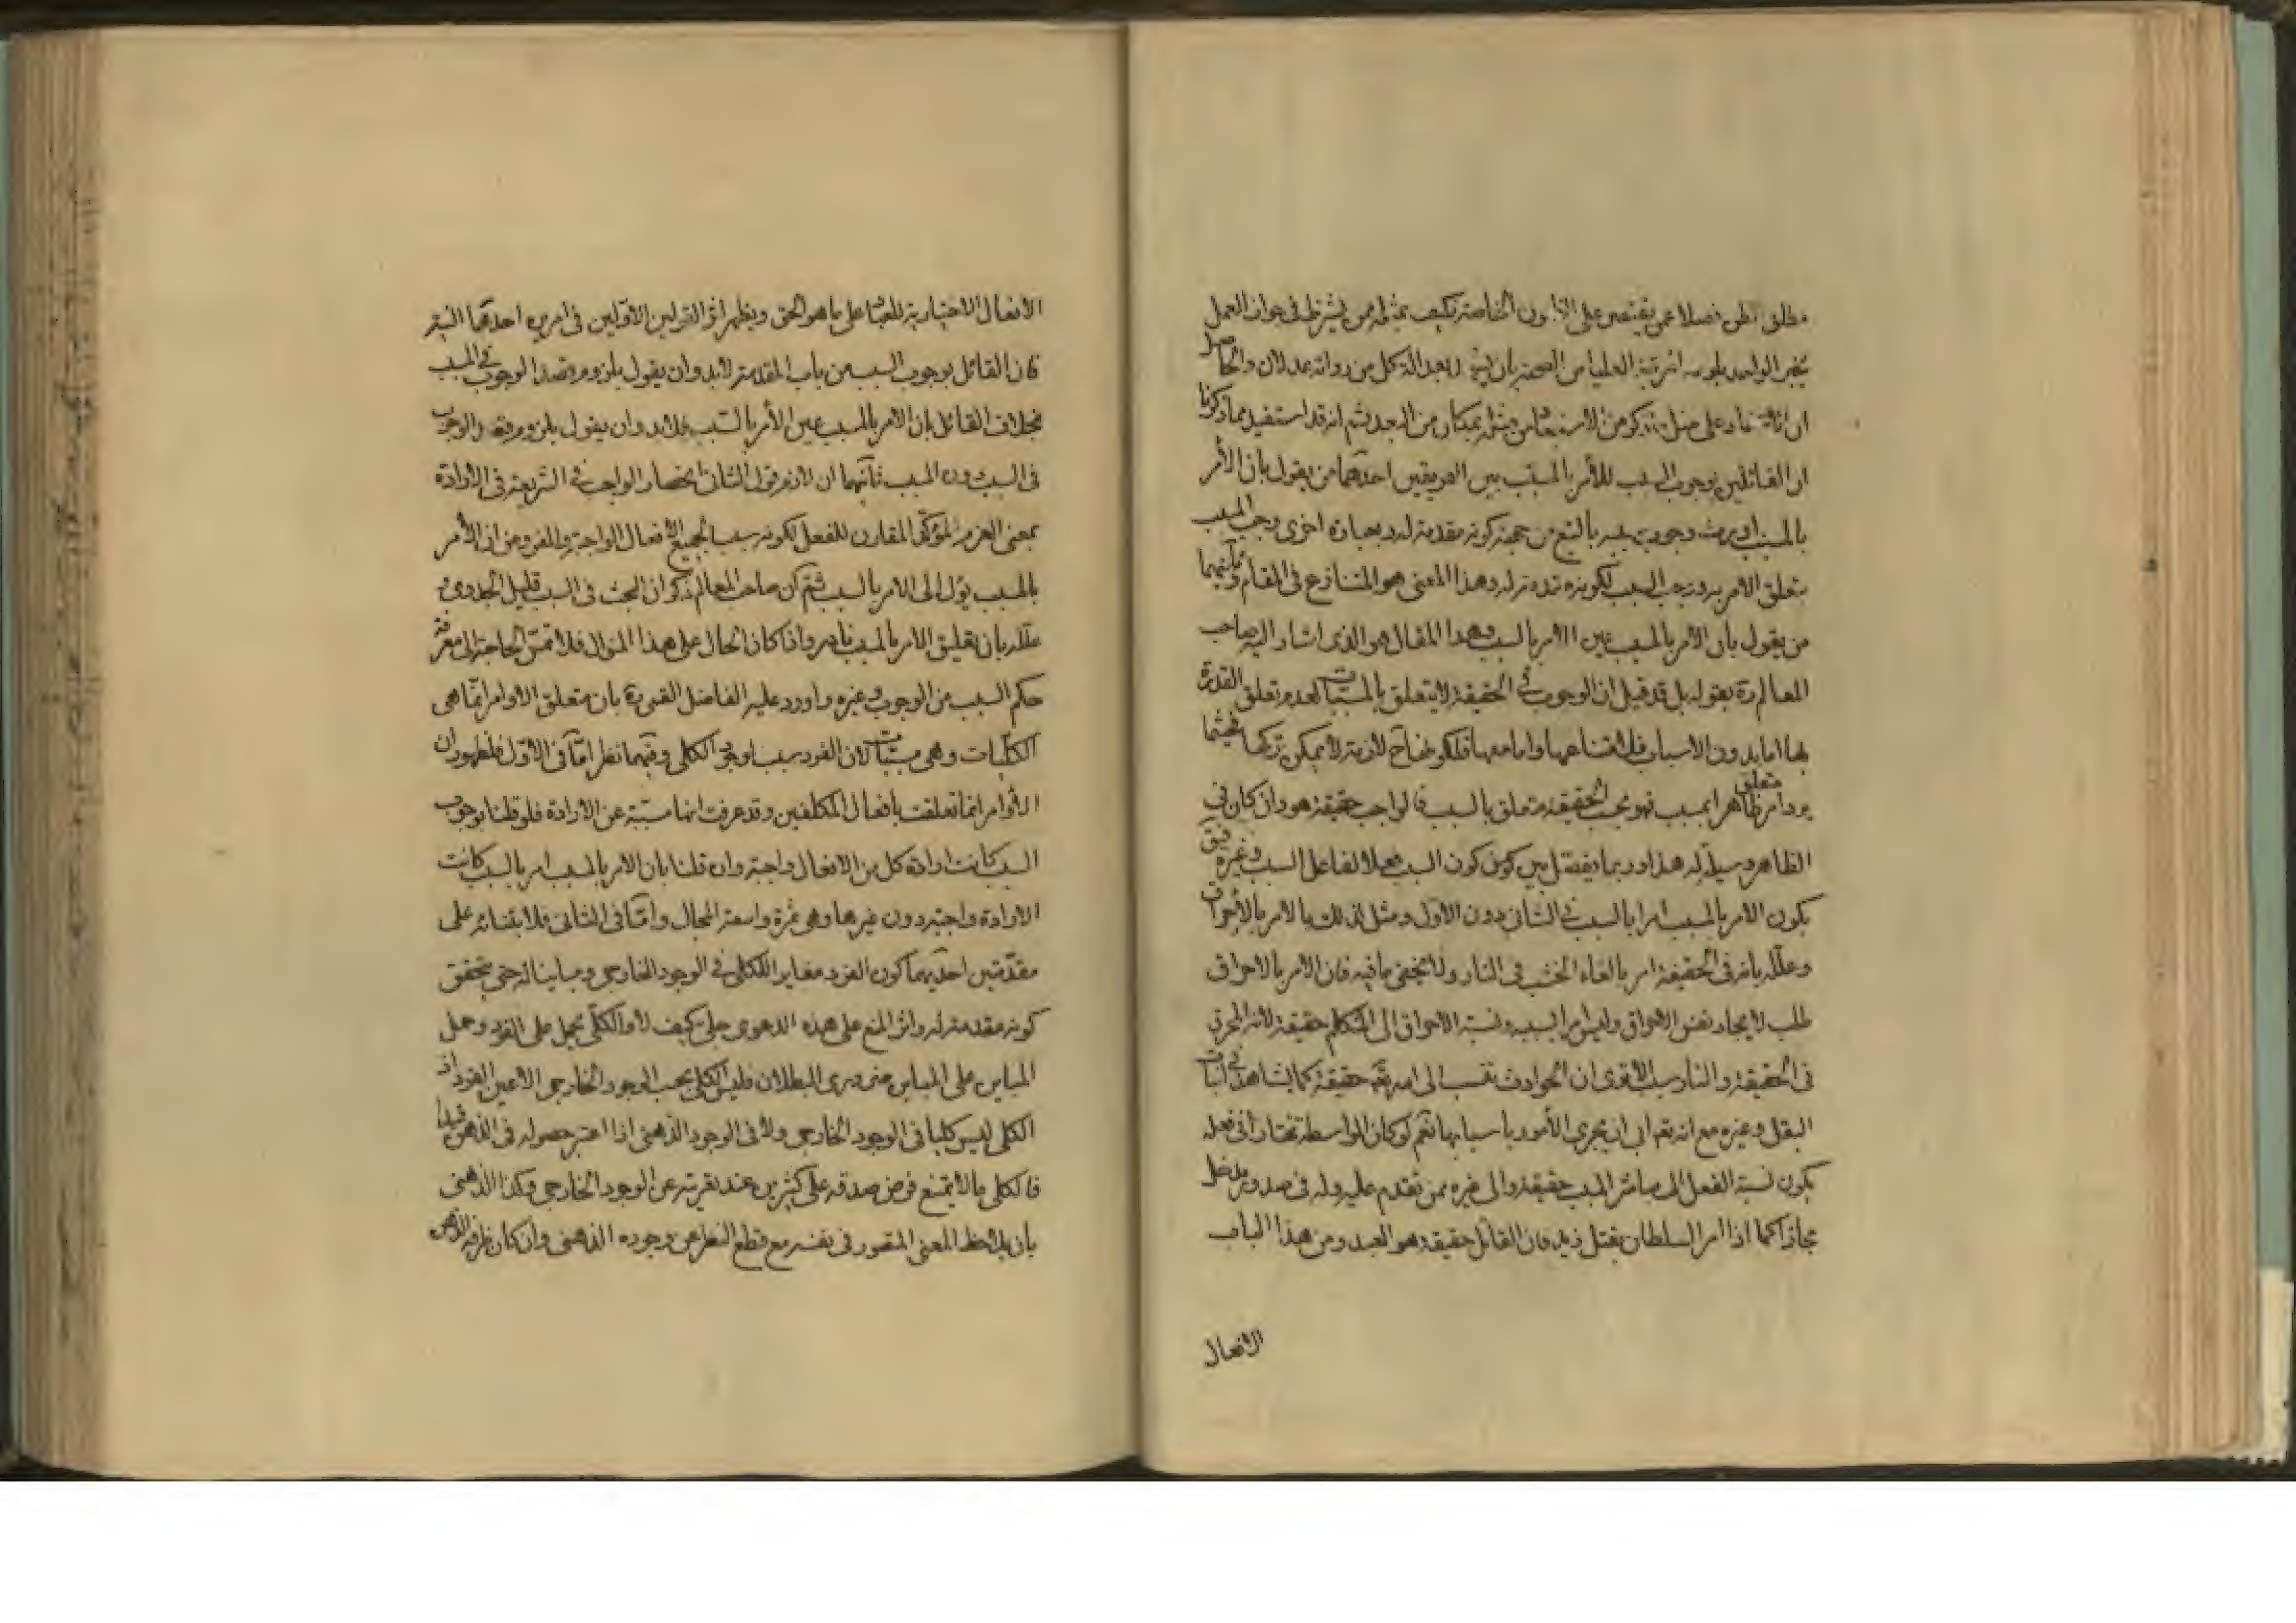 مطلق الظن فضلا عمن يقتصر على الظنون الخاصة فكيف بمثله ممن يشترط فى جواز العمل
بخبر الواحد بلوغه المرتبة العليا من الصحة بان بعدالة كل من رواته عدلان والحاصل
ان على مثل من بمكان من البعد ثم انه قد استفيد مما ذكرنا
ان القائلين بوجوب السبب للأمر بالمسبب بين الفريقين احدهما من يقول بان الأمر
بالمسبب يورث وجوب سببه بالتبع من جهة كونه مقدمة له وبعبارة اخرى وجب المسبب
بتعلق الامر به ووجب السبب لكونه مقدمة له وهذا المعنى هو المتنازع فى المقام وثانيهما
من يقول بان الأمر بالمسبب عين الأمر بالسبب وهذا المقال هو الذى اشار اليه صاحب
المعالم ره بقوله بل قد قيل ان الوجوب فى الحقيقة لا يتعلق بالمسببات لعدم تعلق القدرة
بها اما بدون الاسباب فلامتناعها واما معها فلكونها ح لازمة لا يمكن تركها فحيثما
يرد امر متعلق ظاهرا بمسبب فهو بحسب الحقيقة متعلق بالسبب فالواجب حقيقة هو وان كان فى
الظاهر وسيلة له هذا وربما يفصل بين كون السبب فعلا لفاعل السبب وغيره
يكون الامر بالمسبب امرا بالسبب فى الثانى دون الاول ومثل لذلك بالامر بالأحراق
وعلله بانه فى الحقيقة امر بالقاء الخشب فى النار ولا يخفى ما فيه فان الامر بالاحراق
طلب لايجاد نفس الاحراق وليس امرا بسببه ونسبة الاحراق الى المتكلم حقيقة لانه المحرق
فى الحقيقة والنار سبب الا ترى ان الحوادث تنسب الى امره تعم حقيقة كما يشاهد فى انبات
البقل وغيره مع انه تعم ابى ان يجرى الأمور باسبابها نعم لو كان الواسطة مختارا فى فعله
يكون نسبة الفعل الى مباشر المسبب حقيقة والى غيره ممن تقدم عليه وله فى صدوره مدخل
مجازا كما اذا امر السلطان بقتل زيد فان القاتل حقيقة هو العبد ومن هذا الباب
الافعال
الافعال الاختيارية للعباد على ما هو الحق ويظهر اثر القولين الاولين فى امرين احدهما النية
فان القائل بوجوب السبب من باب المقدمة لابد وان يقول بلزوم قصد الوجوب فى المسبب
بخلاف القائل بان الامر بالمسبب عين الأمر بالسبب فلابد وان يقول بلزوم قصد الوجوب
فى السبب دون المسبب ثانيهما ان لازم قول الثانى انحصار الواجب فى الشريعة فى الارادة
بمعنى العزم المؤكد المقارن للفعل لكونه سببا لجميع الافعال الواجبة والمفروض ان الأمر
بالمسبب يؤل الى الامر بالسبب ثم ان صاحب المعالم ذكر ان البحث فى السبب قليل الجدوى و
علله بان تعليق الامر بالمسبب نادر واذا كان الحال على هذا المنوال فلا تمس الحاجة الى معرفة
حكم السبب من الوجوب وغيره واورد عليه الفاضل القمى ره بان متعلق الاوامر انما هى
الكليات وهى مسببات لان الفرد سبب لوجود الكلى وفيهما نظر اما فى الاول فلظهور ان
الأوامر انما تعلقت بافعال المكلفين وقد عرفت انها مسببة عن الارادة فلو قلنا بوجوب
السبب كانت ارادة كل من الافعال واجبة وان قلنا بان الامر بالمسبب امر بالسبب كانت
الارادة واجبة دون غيرها وهى ثمرة واسعة المجال واما فى الثانى فلابتنائه على
مقدمتين احديهما كون الفرد مغايرا للكلى فى الوجود الخارجى ومباينا له حتى يتحقق
كونه مقدمة له واثر المنع على هذه الدعوى جلى كيف لا والكلى يحمل على الفرد وحمل
المباين على المباين ضرورى البطلان فليس الكلى بحسب الوجود الخارجى الا عين الفرد اذ
الكلى ليس كليا فى الوجود الخارجى ولا فى الوجود الذهنى اذا اعتبر حصوله فى الذهن قيدا
فالكلى ما لا يمتنع فرض صدقه على كثيرين عند تعريته عن الوجود الخارجى وكذا الذهنى
بان يلاحظ المعنى المتصور فى نفسه مع قطع النظر عن وجوده الذهنى وان كان ظرفه الذهن